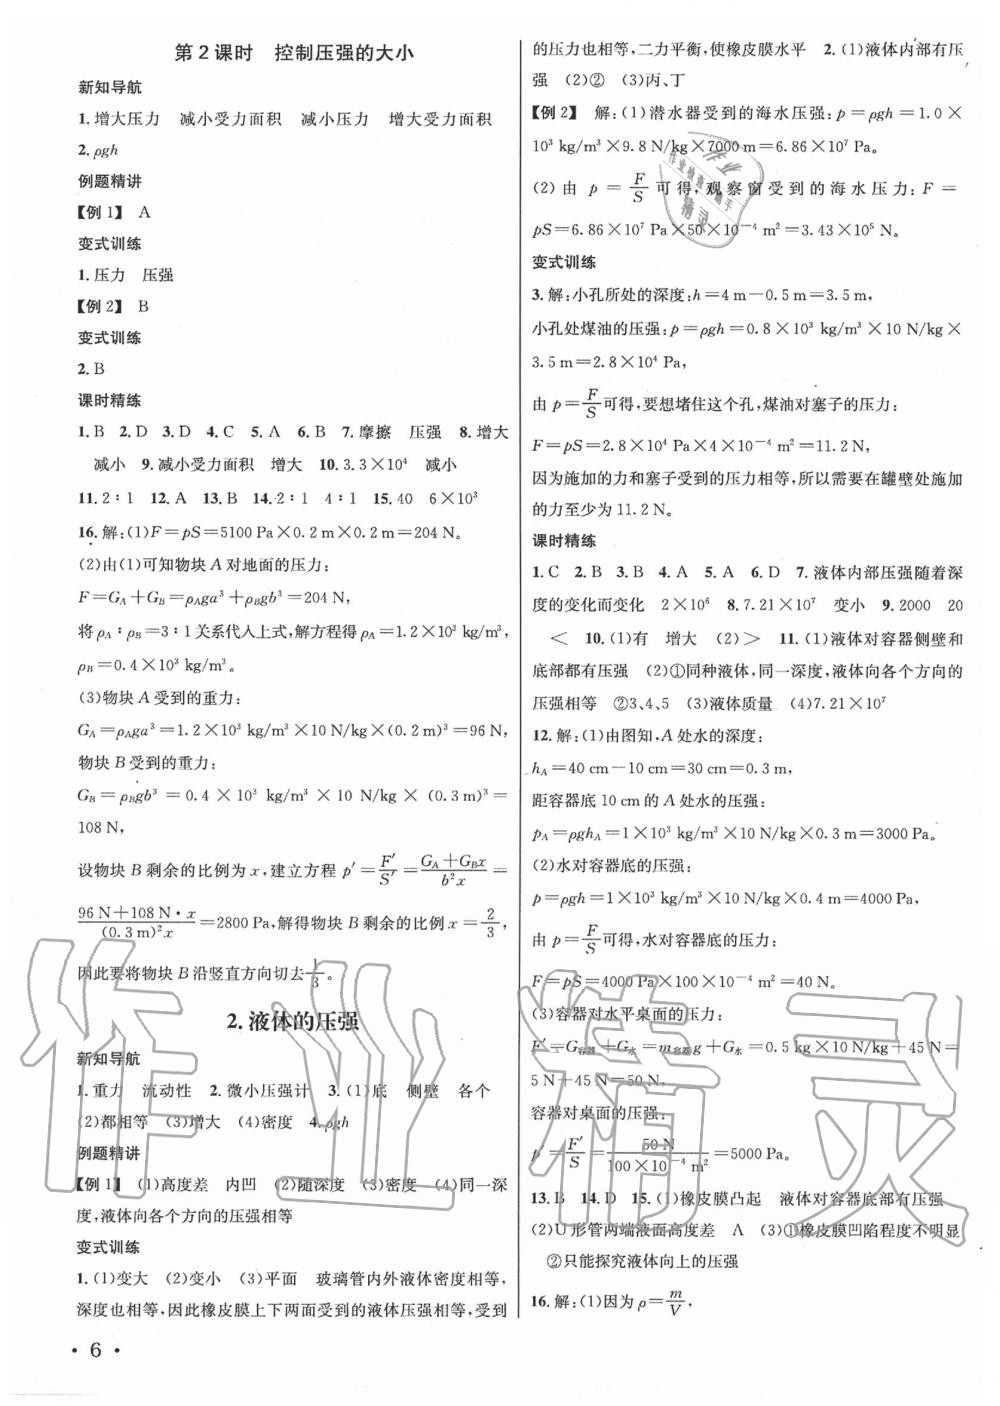 第2课时　控制压强的大小
新知导航
1.增大压力　减小受力面积　减小压力　增大受力面积
2.ρgh
例题精讲
【例1】　A
变式训练
1.压力　压强
【例2】　B
变式训练
2.B
课时精练
1.B　2.D　3.D　4.C　5.A　6.B　7.摩擦　压强　8.增大
减小　9.减小受力面积　增大　10.3.3×10⁴　减小
11.2∶1　12.A　13.B　14.2∶1　4∶1　15.40　6×10³
16.解:(1)F=pS=5100 Pa×0.2 m×0.2 m=204 N。
(2)由(1)可知物块A对地面的压力:
F=G_A+G_B=ρ_Aga³+ρ_Bgb³=204 N,
将ρ_A∶ρ_B=3∶1关系代人上式,解方程得ρ_A=1.2×10³ kg/m³,
ρ_B=0.4×10³ kg/m³。
(3)物块A受到的重力:
G_A=ρ_Aga³=1.2×10³ kg/m³×10 N/kg×(0.2 m)³=96 N,
物块B受到的重力:
G_B=ρ_Bgb³=0.4×10³ kg/m³×10 N/kg×(0.3 m)³=
108 N,
设物块B剩余的比例为x,建立方程 p′=F′/S′=(G_A+G_Bx)/(b²x)=
(96 N+108 N·x)/((0.3 m)²x)=2800 Pa,解得物块B剩余的比例x=2/3,
因此要将物块B沿竖直方向切去1/3。
2.液体的压强
新知导航
1.重力　流动性　2.微小压强计　3.(1)底　侧壁　各个
(2)都相等　(3)增大　(4)密度　4.ρgh
例题精讲
【例1】　(1)高度差　内凹　(2)随深度　(3)密度　(4)同一深
度,液体向各个方向的压强相等
变式训练
1.(1)变大　(2)变小　(3)平面　玻璃管内外液体密度相等,
深度也相等,因此橡皮膜上下两面受到的液体压强相等,受到
· 6 ·
的压力也相等,二力平衡,使橡皮膜水平　2.(1)液体内部有压
强　(2)②　(3)丙、丁
【例2】　解:(1)潜水器受到的海水压强:p=ρgh=1.0×
10³ kg/m³×9.8 N/kg×7000 m=6.86×10⁷ Pa。
(2)由 p=F/S可得,观察窗受到的海水压力:F=
pS=6.86×10⁷ Pa×50×10⁻⁴ m²=3.43×10⁵ N。
变式训练
3.解:小孔所处的深度:h=4 m-0.5 m=3.5 m,
小孔处煤油的压强:p=ρgh=0.8×10³ kg/m³×10 N/kg×
3.5 m=2.8×10⁴ Pa,
由p=F/S可得,要想堵住这个孔,煤油对塞子的压力:
F=pS=2.8×10⁴ Pa×4×10⁻⁴ m²=11.2 N,
因为施加的力和塞子受到的压力相等,所以需要在罐壁处施加
的力至少为11.2 N。
课时精练
1.C　2.B　3.B　4.A　5.A　6.D　7.液体内部压强随着深
度的变化而变化　2×10⁶　8.7.21×10⁷　变小　9.2000　20
<　10.(1)有　增大　(2)>　11.(1)液体对容器侧壁和
底部都有压强　(2)①同种液体,同一深度,液体向各个方向的
压强相等　②3、4、5　(3)液体质量　(4)7.21×10⁷
12.解:(1)由图知,A处水的深度:
h_A=40 cm-10 cm=30 cm=0.3 m,
距容器底10 cm的A处水的压强:
p_A=ρgh_A=1×10³ kg/m³×10 N/kg×0.3 m=3000 Pa。
(2)水对容器底的压强:
p=ρgh=1×10³ kg/m³×10 N/kg×0.4 m=4000 Pa,
由p=F/S可得,水对容器底的压力:
F=pS=4000 Pa×100×10⁻⁴ m²=40 N。
(3)容器对水平桌面的压力:
F′=G_容器+G_水=m_容器g+G_水=0.5 kg×10 N/kg+45 N=
5 N+45 N=50 N,
容器对桌面的压强:
p′=F′/S=50 N/(100×10⁻⁴ m²)=5000 Pa。
13.B　14.D　15.(1)橡皮膜凸起　液体对容器底部有压强
(2)U形管两端液面高度差　A　(3)①橡皮膜凹陷程度不明显
②只能探究液体向上的压强
16.解:(1)因为ρ=m/V,
作业精灵